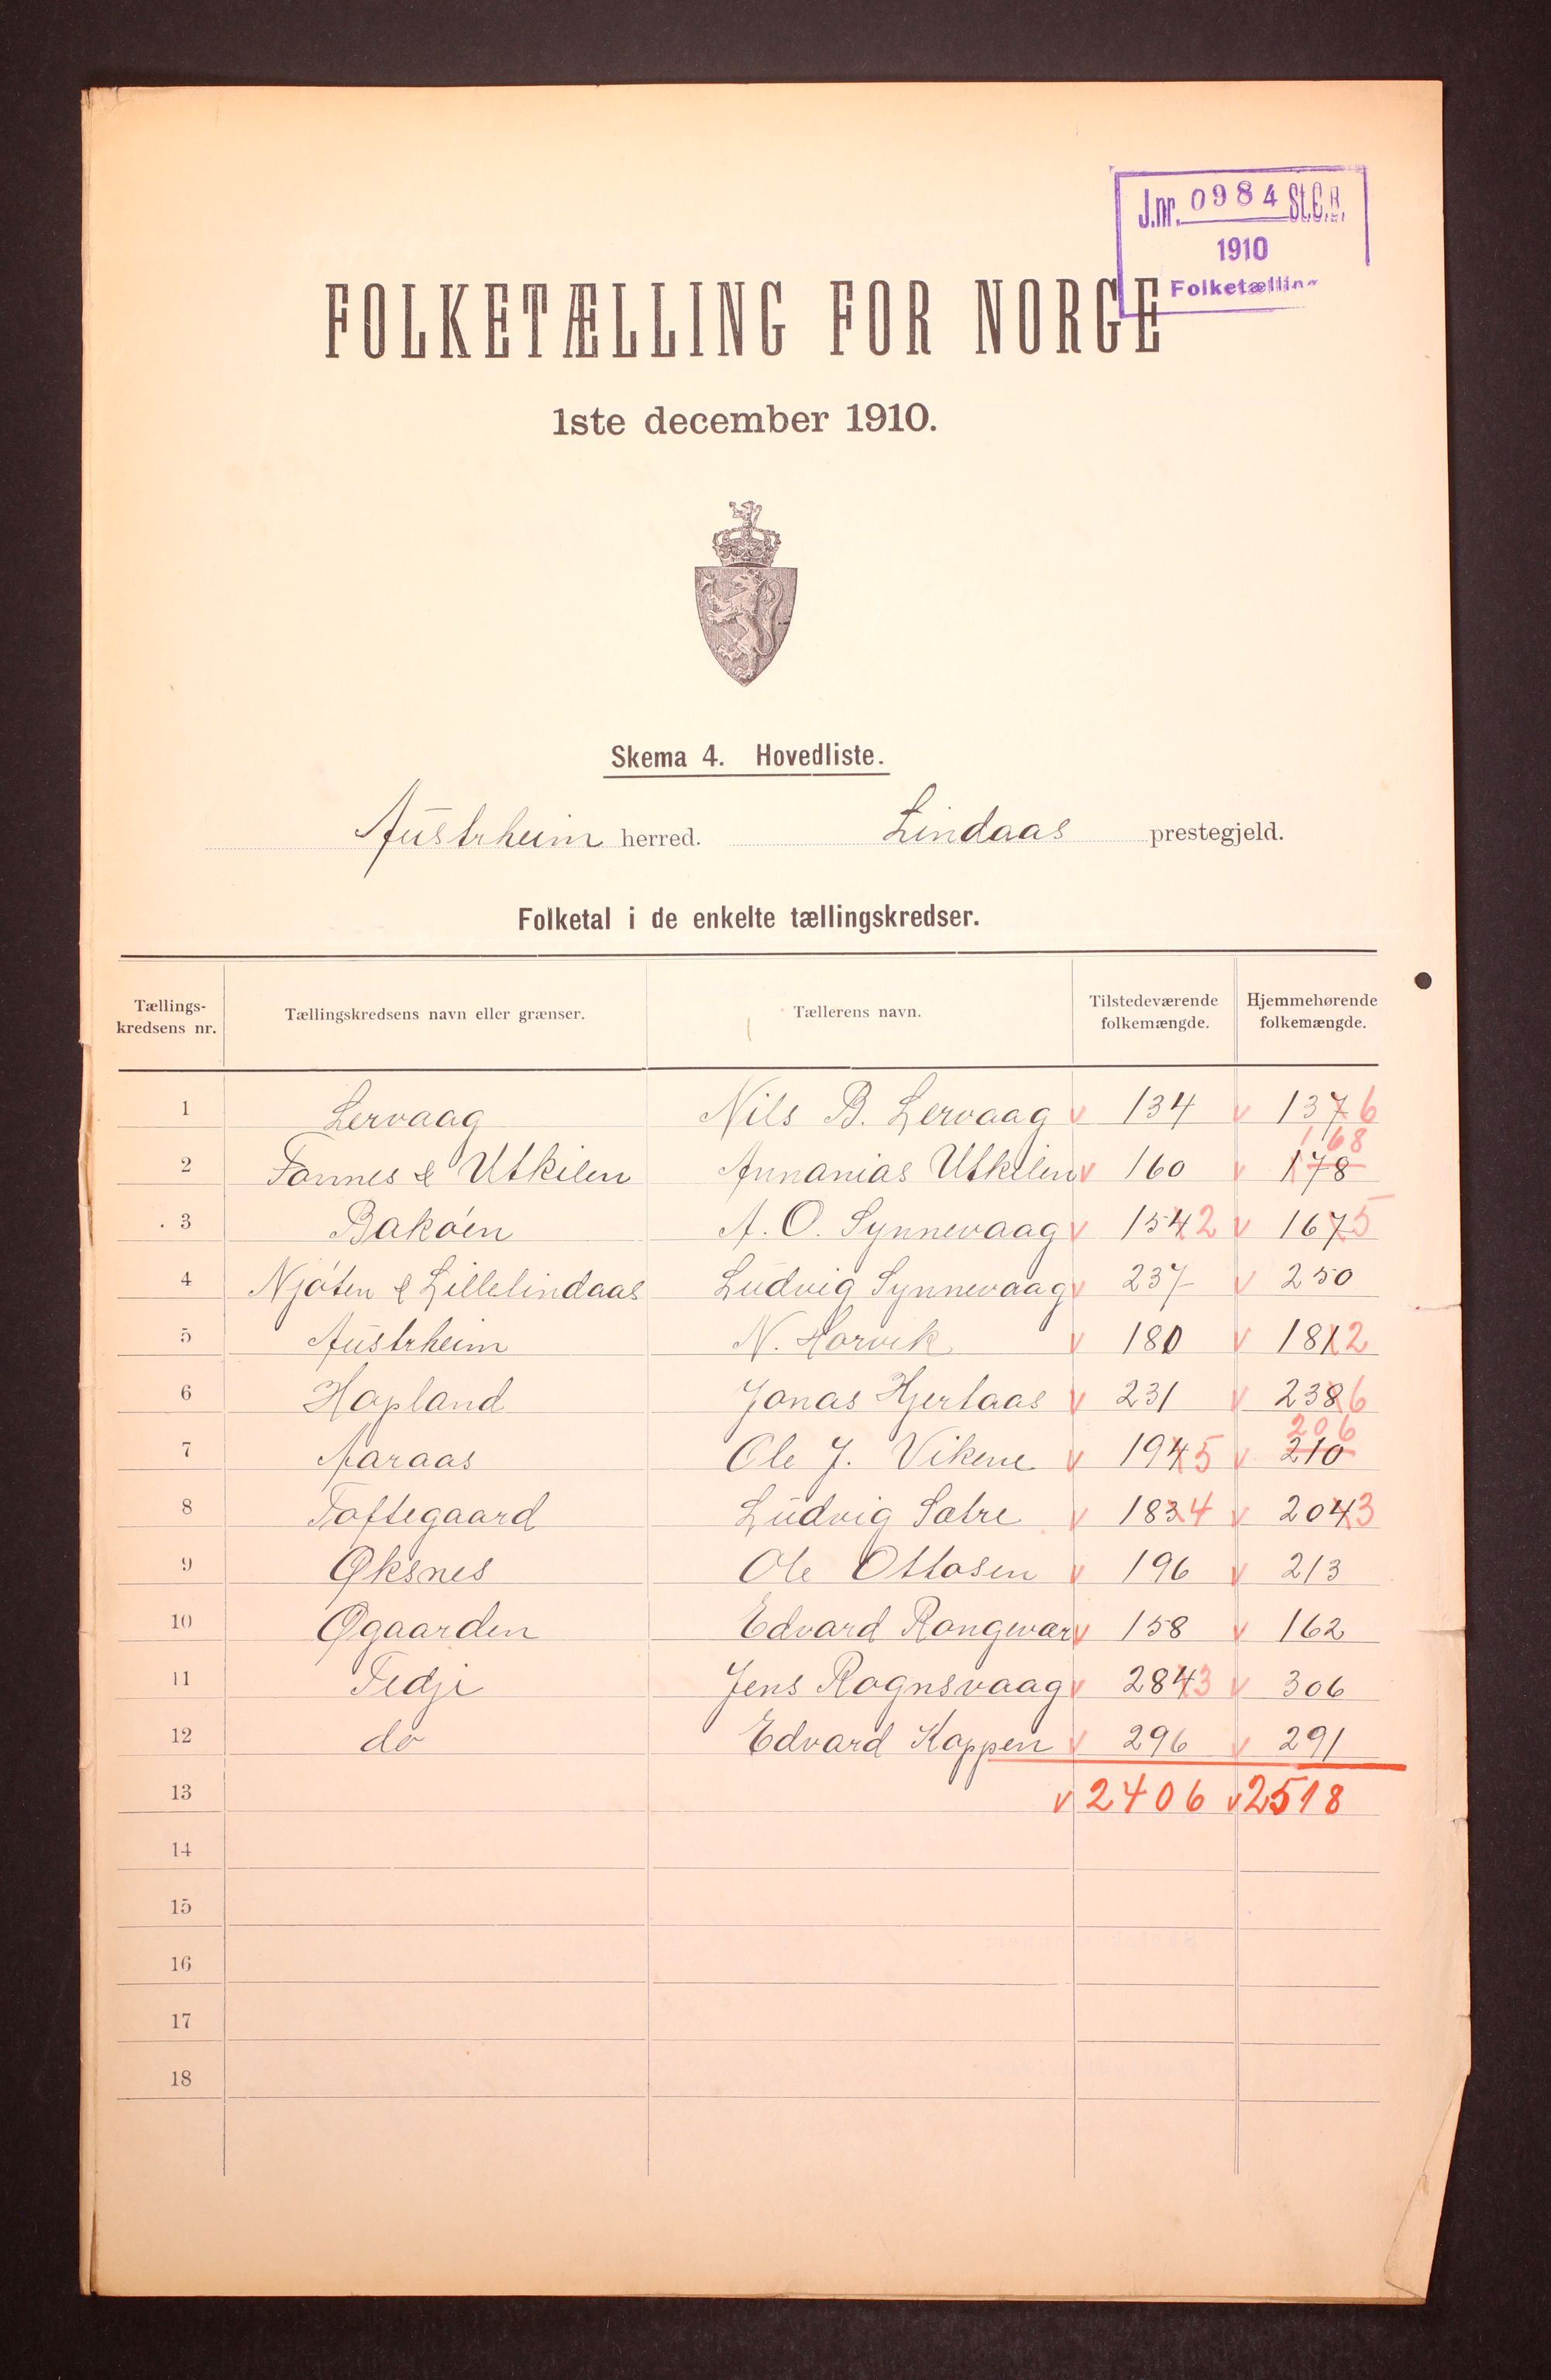 J.nr. 0984 St.C.B.
1910
Folketælling
FOLKETÆLLING FOR NORGE
1ste december 1910.
Skema 4. Hovedliste.
Austrheim herred. Lindaas prestegjeld.
Folketal i de enkelte tællingskredser.
Tællings-kredsens nr. Tællingskredsens navn eller grænser. Tællerens navn. Tilstedeværende folkemængde. Hjemmehørende folkemængde.
1 Lervaag Nils B. Lervaag v 134 v 137 6
2 Fonnes & Utkilen Annanias Utkilen v 160 v 178 168
3 Bakøen A. O. Synnevaag v 154 2 v 167 5
4 Njøten & Lillelindaas Ludvig Synnevaag v 237 v 250
5 Austrheim N. Horvik v 180 v 181 2
6 Hopland Jonas Hjertaas v 231 v 238 6
7 Aaraas Ole J. Vikene v 194 5 v 210 206
8 Toftegaard Ludvig Sætre v 183 4 v 204 3
9 Øksnes Ole Ottosen v 196 v 213
10 Øgaarden Edvard Rongevær v 158 v 162
11 Fedje Jens Rognsvaag v 284 3 v 306
12 do Edvard Koppen v 296 v 291
13 v 2406 v 2518
14
15
16
17
18